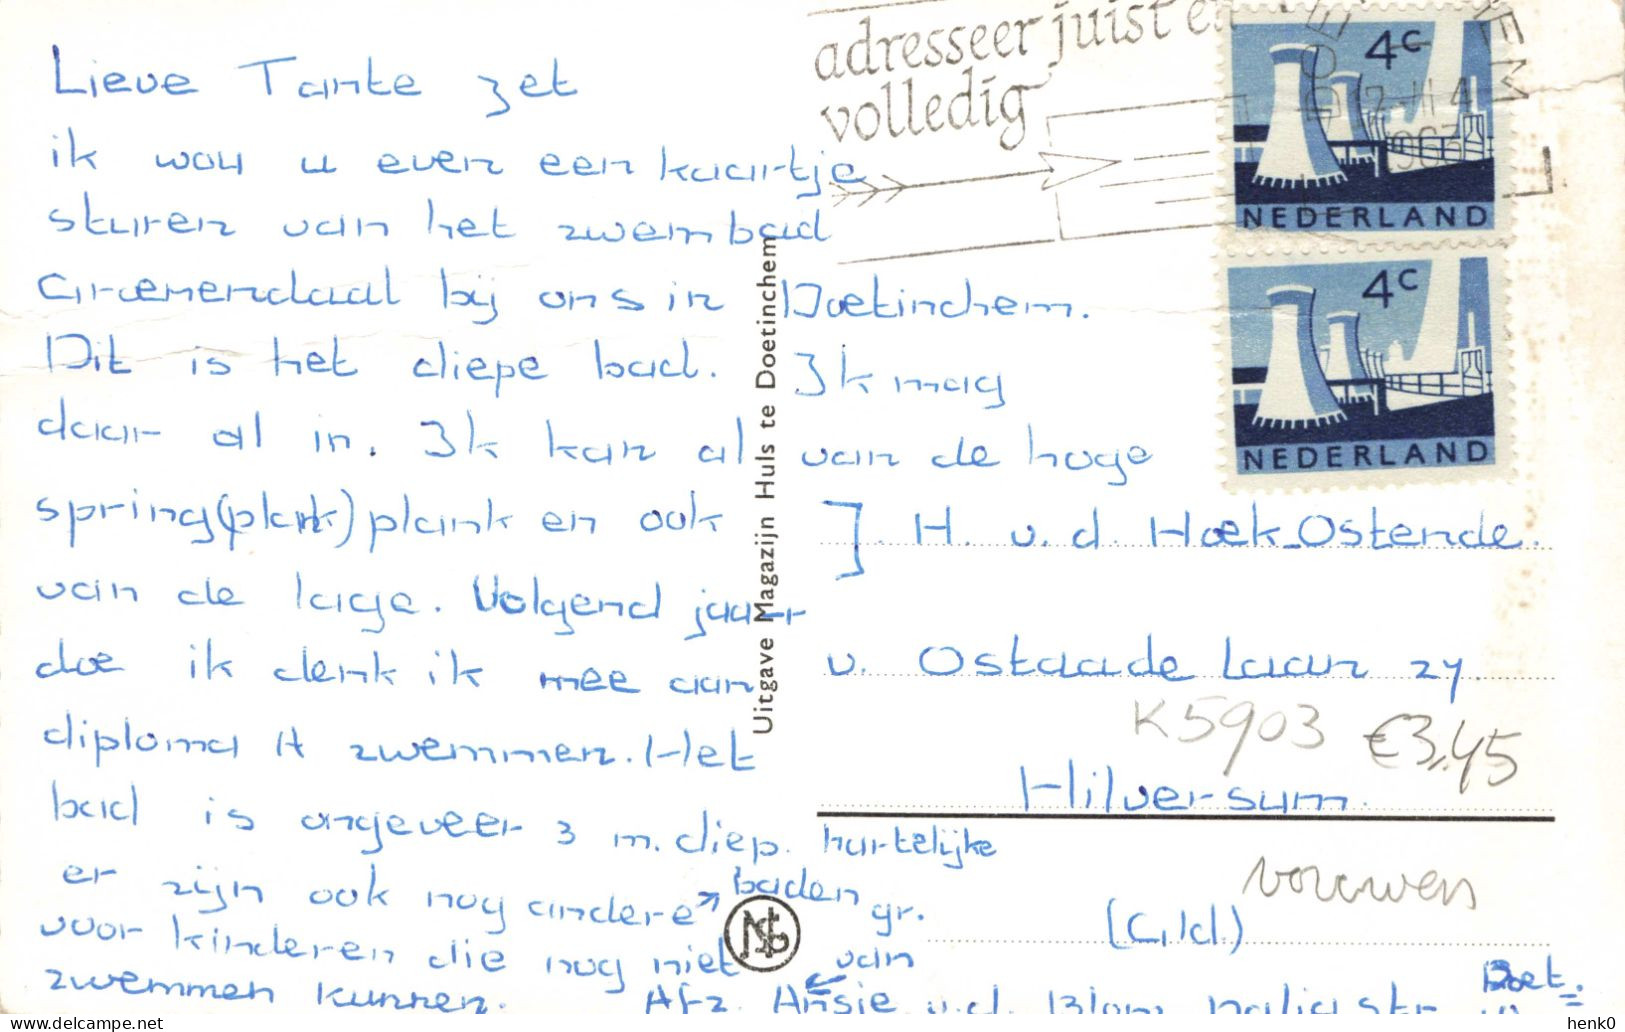 Lieve Tante zet
ik wou u even een kaartje
sturen van het zwembad
Groenendaal bij ons in Doetinchem.
Dit is het diepe bad. Ik mag
daar al in. Ik kan al van de hoge
spring(plank) plank en ook
van de lage. Volgend jaar
doe ik denk ik mee aan
diploma A zwemmen. Het
bad is ongeveer 3 m. diep.
er zijn ook nog andere baden
voor kinderen die nog niet
zwemmen kunnen.
hartelijke
gr.
van
Afz. Ansie v.d. Blom
Doet.
Uitgave Magazijn Huls te Doetinchem
adresseer juist en
volledig
12-II 4
1963
4c
NEDERLAND
4c
NEDERLAND
J. H. v.d. Hoek-Ostende.
v. Ostaade Laan 24.
K5903 €3,45
Hilversum.
vouwen
(Gld.)
henk0